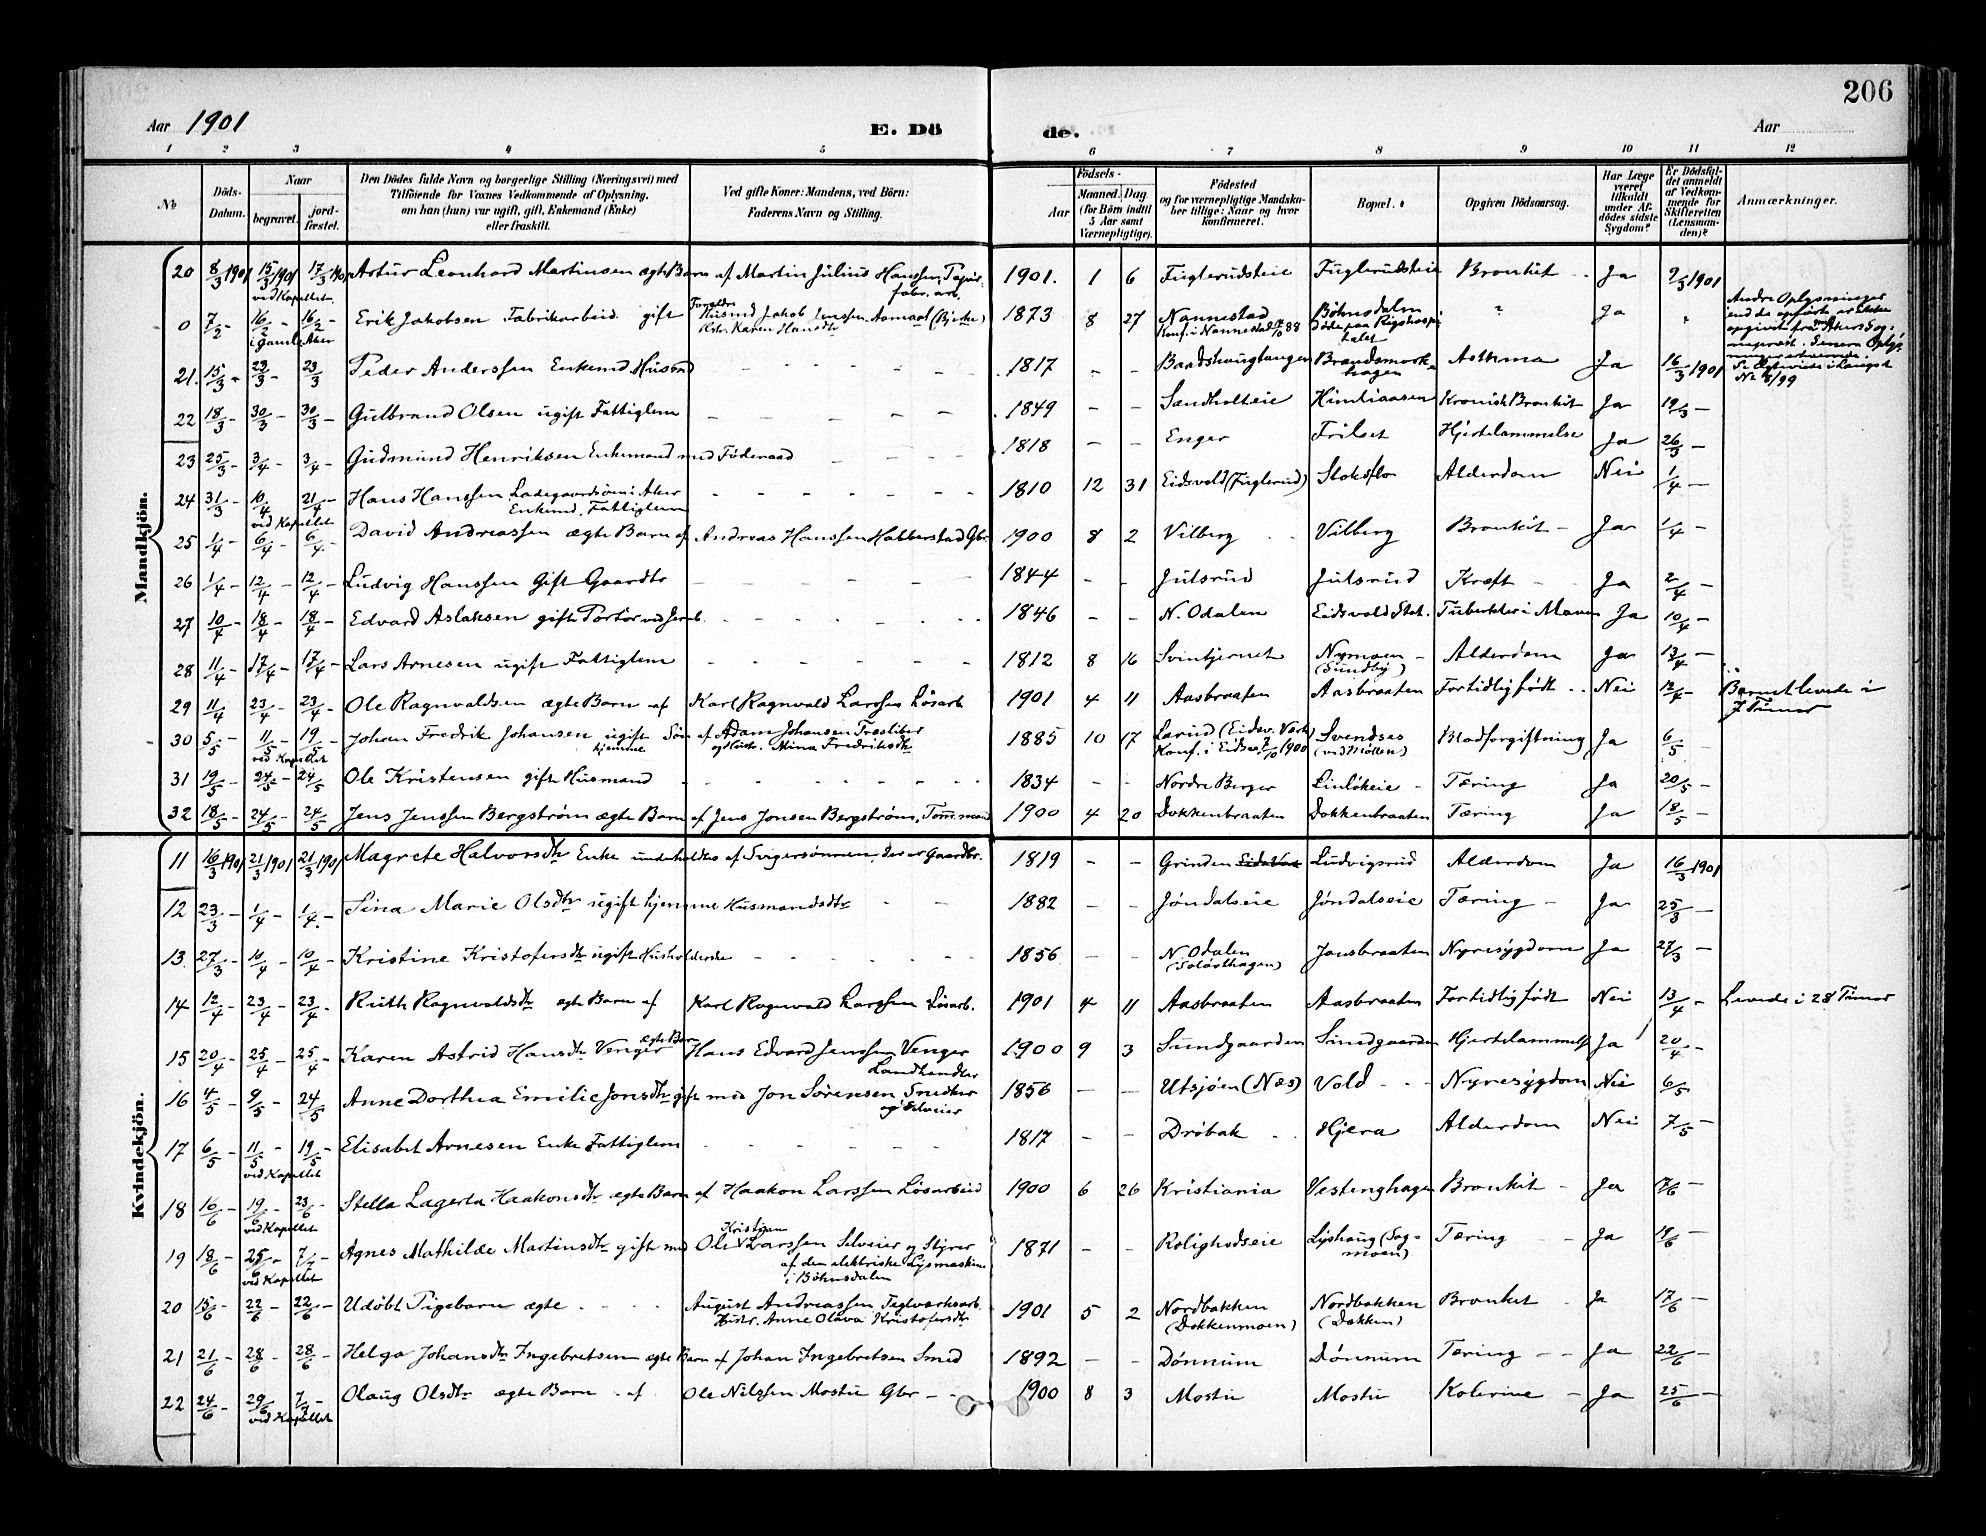 206
Aar 1901 E. Dö de. Aar
1 2 3 4 5 6 7 8 9 10 11 12
No
Döds-Datum.
Naar begravet. jordfæstet.
Den Dödes fulde Navn og borgerlige Stilling (Næringsvei) med Tilföiende for Voxnes Vedkommende af Oplysning, om han (hun) var ugift, gift, Enkemand (Enke) eller fraskilt.
Ved gifte Koner: Mandens, ved Börn: Faderens Navn og Stilling.
Födsels- Aar Maaned. Dag (for Börn indtil 5 Aar samt Værnepligtige).
Födested og for værnepligtige Mandskaber tillige: Naar og hvor konfirmeret.
Bopæl.
Opgiven Dödsaarsag.
Har Læge været tilkaldt under Afdödes sidste Sygdom?
Er Dödsfaldet anmeldt af Vedkommende for Skifteretten (Lensmanden)?
Anmærkninger.
Mandkjön.
20 8/3 1901 15/3 1901 ved Kapellet. 17/3 1901 Artur Leonhard Martinsen ægte Barn af Martin Julius Hanssen, Papirfabr. arb. 1901. 1 6 Fuglerudsteie Fuglerudsteie Bronkit Ja 9/3 1901
0 7/2 - 16/2 - i Gamle Aker 16/2 - Erik Jakobsen Fabrikarbeid. gift Forældre Husmd Jakob Jenssen Aamaat (Bjerke) Kstr. Karen Hansdtr 1873 8 27 Nannestad Konf. i Nannestad 88 Böhnsdalen Döde paa Rigshospitalet " Ja "
21. 15/3 - 23/3 - 23/3 Peder Anderssen Enkemd Husmd 1817 - - Baadshaugtangen Brandsmorkhagen Asthma Ja 16/3 1901 No 8/99
22 18/3 - 30/3 - 30/3 - Gulbrand Olsen ugift Fattiglem 1849 - - Sandholteie Himliaasen Kronisk Bronkit Ja 19/3 -
23 25/3 - 3/4 - 3/4 - Gudmund Henriksen Enkemand med Föderaad 1818 - - Enger Frilset Hjertelammelse Ja 26/3 -
24 31/3 - 10/4 ved Kapellet 21/4 - Hans Hanssen Ladegaardsöen i Aker Enkemd. Fattiglem 1810 12 31 Eidsvold (Fuglerud) Stoksflo Alderdom Nei 1/4 -
25 1/4 - 6/4 - 6/4 - David Andreassen ægte Barn af Andreas Hanssen Habberstad Gbr. 1900 8 2 Vilberg Vilberg Bronkit - Ja 1/4 -
26 1/4 - 12/4 - 12/4 - Ludvig Hanssen Gift Gaardbr 1844 - - Julsrud Julsrud Kræft - Ja 2/4 -
27 10/4 - 18/4 - 18/4 - Edvard Aslaksen gift Portör ved Jernb. 1846 - - N. Odalen Eidsvold Stat. Tuberkler i Maven Ja 10/4 -
28 11/4 - 17/4 - 17/4 - Lars Arnesen ugift Fattiglem 1812 8 16 Svintjernet Nymoen (Sundby) Alderdom Ja 13/4 -
29 11/4 23/4 - 23/4 - Ole Ragnvaldsen ægte Barn af Karl Ragnvald Larssen Lösarb 1901 4 11 Aasbraaten Aasbraaten Fortidlig födt Nei 12/4 - Barnet levede i 7 Timer
30 5/5 11/5 - ved Kapellet 19/5 - Johan Fredrik Johansen ugift Sön hjemme af Adam Johansen Træsliber og Hustr. Mina Fredriksdtr 1885 10 17 Larud (Eidsv. Værk) Konf. i Eidsv. 7/10 1900 Svendses (ved Möllen) Blodforgiftning Ja 6/5 -
31 19/5 - 24/5 - 24/5 Ole Kristensen gift Husmand 1834 - - Nordre Berger Linlökeie Tæring Ja 20/5 -
32 18/5 - 24/5 - 24/5 Jens Jenssen Bergström ægte Barn af Jens Jonsen Bergström, Tömmermand 1900 4 20 Dokkenbraaten Dokkenbraaten Tæring Ja 18/5 -
Kvindekjön.
11 16/3 1901 21/3 1901 21/3 1901 Magrete Halvorsdtr Enke underholdtes af Svigersönnen, der er Gaardbr. 1819 - - Grinden Ludvigsrud Alderdom Ja 16/3 1901
12 23/3 - 1/4 - 1/4 - Lina Marie Olsdtr ugift hjemme Husmandsdtr 1882 - - Jöndalseie Jöndalseie Tæring - Ja 25/3 -
13 27/3 - 10/4 - 10/4 - Kristine Kristofersdtr ugift Husholderske 1856 - - N. Odalen (Solörthagen) Jonsbraaten Nyresygdom Ja 27/3 -
14 12/4 - 23/4 - 23/4 - Ruth Ragnvaldsdtr ægte Barn af Karl Ragnvald Larssen Lösarb. 1901 4 11 Aasbraaten Aasbraaten Fortidlig födt Nei 13/4 - Levede i 28 Timer
15 20/4 - 25/4 - 25/4 - Karen Astrid Hansdtr Venger ægte Barn Hans Edvard Jenssen Venger Landhandler 1900 9 3 Sundgaarden Sundgaarden Hjertelammelse Ja 20/4 -
16 4/5 - 9/5 - 24/5 Anne Dorthea Emilie Jonsdtr gift med Jon Sörensen Snedker og Selveier 1856 - - Utsjöen (Næs) Vold Nyresygdom Nei 6/5
17 6/5 - 11/5 - ved Kapellet 19/5 - Elisabet Arnesen Enke Fattiglem 1817 - - Dröbak Hjera Alderdom Nei 7/5 -
18 16/6 - 19/6 - ved Kapellet 23/6 - Stella Lagerta Haakonsdtr ægte Barn af Haakon Larssen Lösarbeid 1900 6 26 Kristiania Vestenghagen Bronkit - Ja 17/6 -
19 18/6 - 25/6 - ved Kapellet 7/7 - Agnes Mathilde Martinsdtr gift med Ole Kristian Larssen Selveier og Styrer af den elektriske Lysmaskin i Böhnsdalen 1871 - - Rolighedseie Lishaug (Sagmoen) Tæring Ja 19/6 -
20 15/6 - 22/6 - 22/6 - Udöbt Pigebarn ægte August Andreassen Teglværksarb. Hustr. Anne Olava Kristofersdtr 1901 5 2 Nordbakken (Dokkenmoen) Nordbakken (Dokken) Bronkit Ja 17/6 -
21 21/6 - 28/6 - 28/6 - Helga Johansdtr Ingebretsen ægte Barn af Johan Ingebretsen Smed 1892 - - Dönnum Dönnum Tæring - Ja 22/6 -
22 24/6 - 29/6 - ved Kapellet 7/7 - Olaug Olsdtr ægte Barn af Ole Nilssen Mostu Gbr - 1900 8 3 Mostu Mostu Kolerine - Ja 25/6 -